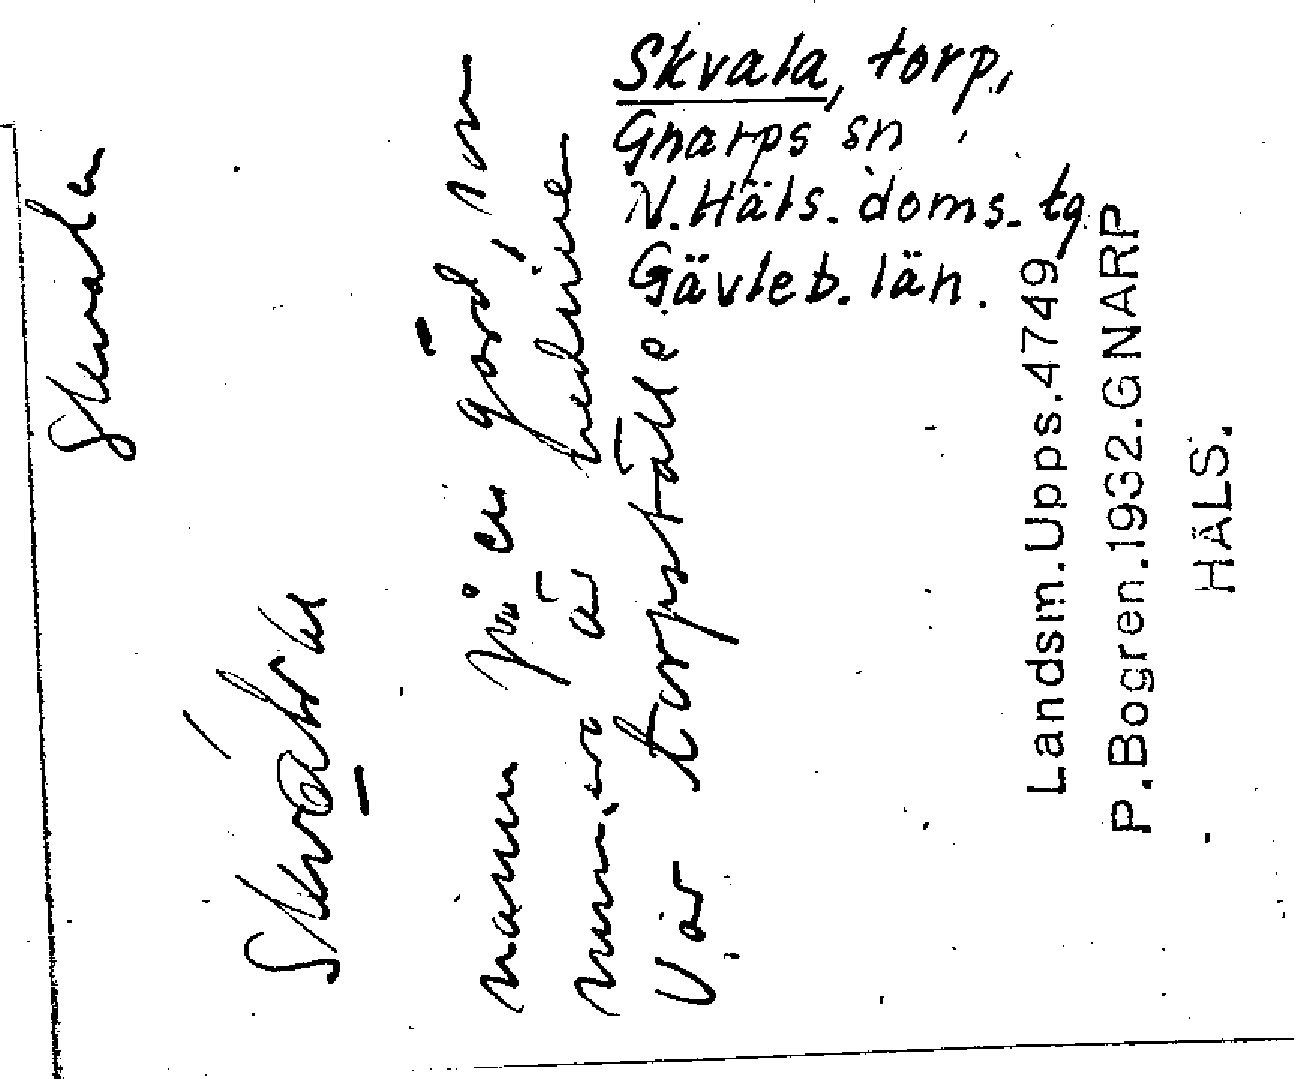 Skvala, torp,
Gnarps sn
N. Häls. doms. tg
Gävleb. län.
Skvalen
namn på en gård, som
numera är
Var torpställe.
Landsm. Upps. 4749
P. Bogren. 1932. GNARP
HÄLS.